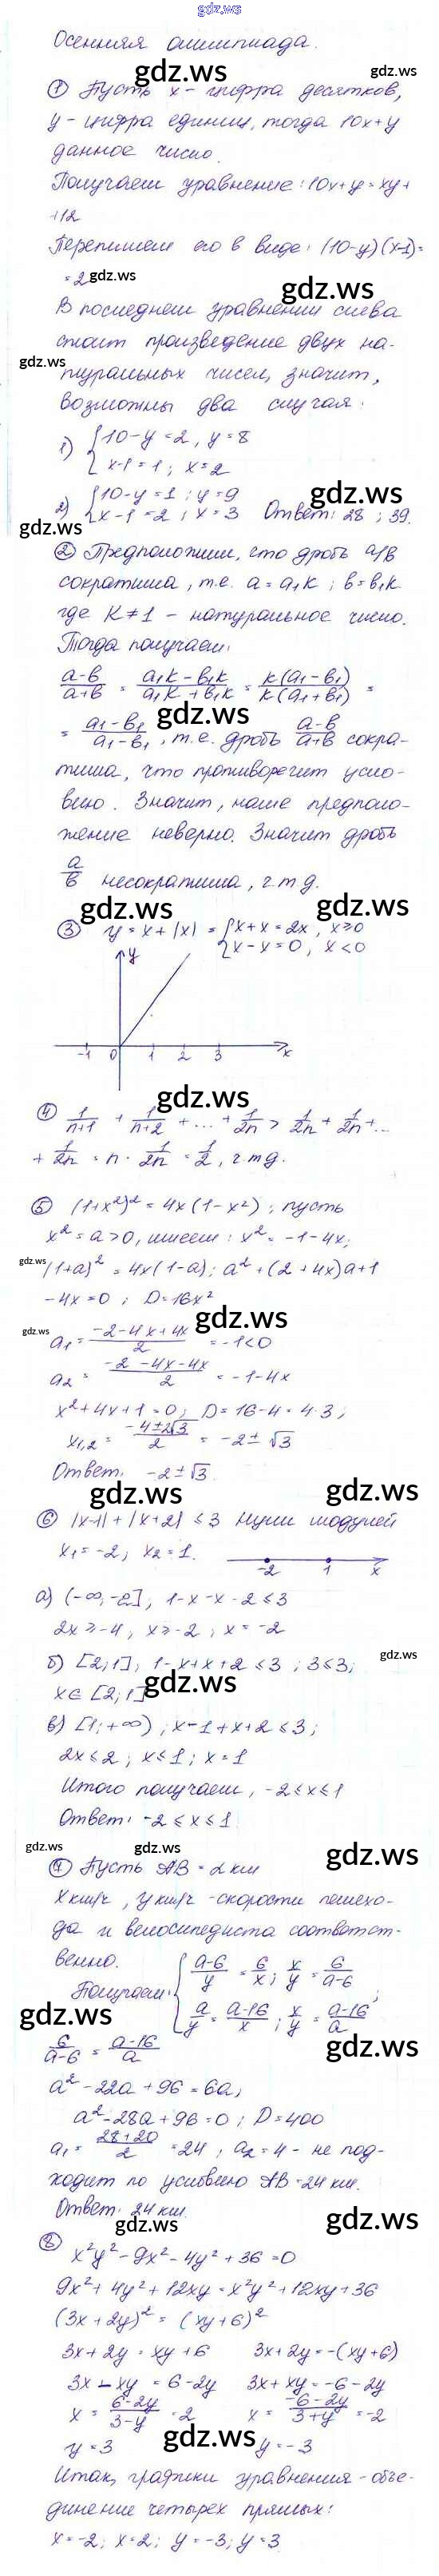 gdz.ws
Осенняя олимпиада.
gdz.ws gdz.ws
① Пусть x - цифра десятков,
y - цифра единиц, тогда 10x+y
данное число.
Получаем уравнение: 10x+y=xy+
+12
Перепишем его в виде: (10-y)(x-1)=
=2
gdz.ws gdz.ws
В последнем уравнении слева
стоит произведение двух на-
gdz.ws
туральных чисел, значит,
возможны два случая:
1) {10-y=2, y=8
x-1=1; x=2
gdz.ws
2) {10-y=1; y=9
x-1=2; x=3 Ответ: 28; 39.
gdz.ws
② Предположим, что дробь a/b
сократима, т.е. a=a₁k; b=b₁k
где k≠1 - натуральное число.
Тогда получаем:
(a-b)/(a+b) = (a₁k-b₁k)/(a₁k+b₁k) = k(a₁-b₁)/k(a₁+b₁) =
= (a₁-b₁)/(a₁-b₁), т.е. дробь (a-b)/(a+b) сокра-
gdz.ws
тима, что противоречит усло-
вию. Значит, наше предполо-
жение неверно. Значит дробь
a/b несократима, ч.т.д.
gdz.ws gdz.ws
③ y=x+|x| = {x+x=2x, x≥0
x-x=0, x<0
y
-1 0 1 2 3 x
gdz.ws
④ 1/(n+1) + 1/(n+2) + ... + 1/2n > 1/2n + 1/2n + ...
+ 1/2n = n · 1/2n = 1/2, ч.т.д.
⑤ (1+x²)² = 4x(1-x²); пусть
x²=a>0, имеем: x²=-1-4x;
gdz.ws
(1+a)²=4x(1-a); a²+(2+4x)a+1
-4x=0; D=16x²
gdz.ws
gdz.ws
a₁ = (-2-4x+4x)/2 = -1<0
a₂ = (-2-4x-4x)/2 = -1-4x
x²+4x+1=0; D=16-4=4·3;
x₁,₂ = (-4±2√3)/2 = -2±√3
Ответ: -2±√3.
gdz.ws gdz.ws
⑥ |x-1|+|x+2|≤3 Нули модулей
x₁=-2; x₂=1.
-2 1 x
а) (-∞;-2], 1-x-x-2≤3
2x≥-4, x≥-2; x=-2
gdz.ws
б) [2;1]; 1-x+x+2≤3; 3≤3;
x∈[2;1]
gdz.ws
в) [1;+∞); x-1+x+2≤3;
2x≤2; x≤1; x=1
Итого получаем, -2≤x≤1
Ответ: -2≤x≤1.
gdz.ws gdz.ws gdz.ws
⑦ Пусть AB = a км
x км/ч, y км/ч - скорости пешехо-
да и велосипедиста соответст-
венно.
Получаем: {(a-6)/y = 6/x; x/y = 6/(a-6);
a/y = (a-16)/x; x/y = (a-16)/a
gdz.ws
6/(a-6) = (a-16)/a
gdz.ws
a²-22a+96=6a;
a²-28a+96=0; D=400
a₁ = (28+20)/2 = 24, a₂=4 - не под-
ходит по условию AB=24 км.
Ответ: 24 км.
gdz.ws gdz.ws
⑧ x²y²-9x²-4y²+36=0
9x²+4y²+12xy=x²y²+12xy+36
(3x+2y)²=(xy+6)²
3x+2y=xy+6 3x+2y=-(xy+6)
3x-xy=6-2y 3x+xy=-6-2y
x = (6-2y)/(3-y) = 2 x = (-6-2y)/(3+y) = -2
gdz.ws
y=3 y=-3
Итак, графики уравнения - объе-
динение четырех прямых:
x=-2; x=2; y=-3; y=3.